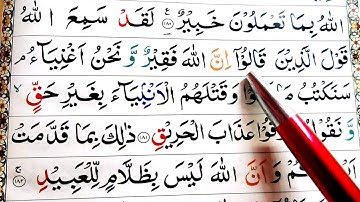 اللهُ بِمَا تَعْمَلُوْنَ خَبِيْرٌ ﴿۱۸۰﴾ لَقَدْ سَمِعَ اللهُ
قَوْلَ الَّذِيْنَ قَالُوْۤا اِنَّ اللهَ فَقِيْرٌ وَّ نَحْنُ اَغْنِيَآءُ ۘ
سَنَكْتُبُ مَا وَقَتْلَهُمُ الْاَنْۢبِيَآءَ بِغَيْرِ حَقٍّ ۙ
وَّ نَقُوْلُ عَذَابَ الْحَرِيْقِ ﴿۱۸۱﴾ ذٰلِكَ بِمَا قَدَّمَتْ
وَ اَنَّ اللهَ لَيْسَ بِظَلَّامٍ لِّلْعَبِيْدِ ﴿۱۸۲﴾